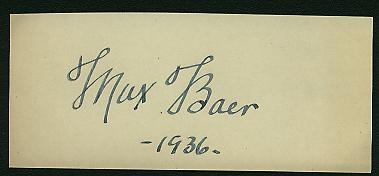 Max Baer
-1936-